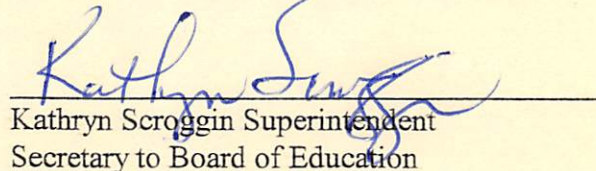 Kathryn Scroggin
Kathryn Scroggin Superintendent
Secretary to Board of Education